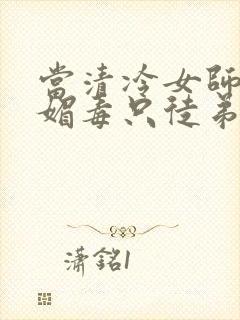 當清冷女師
媚毒只徒弟
瀟銘1